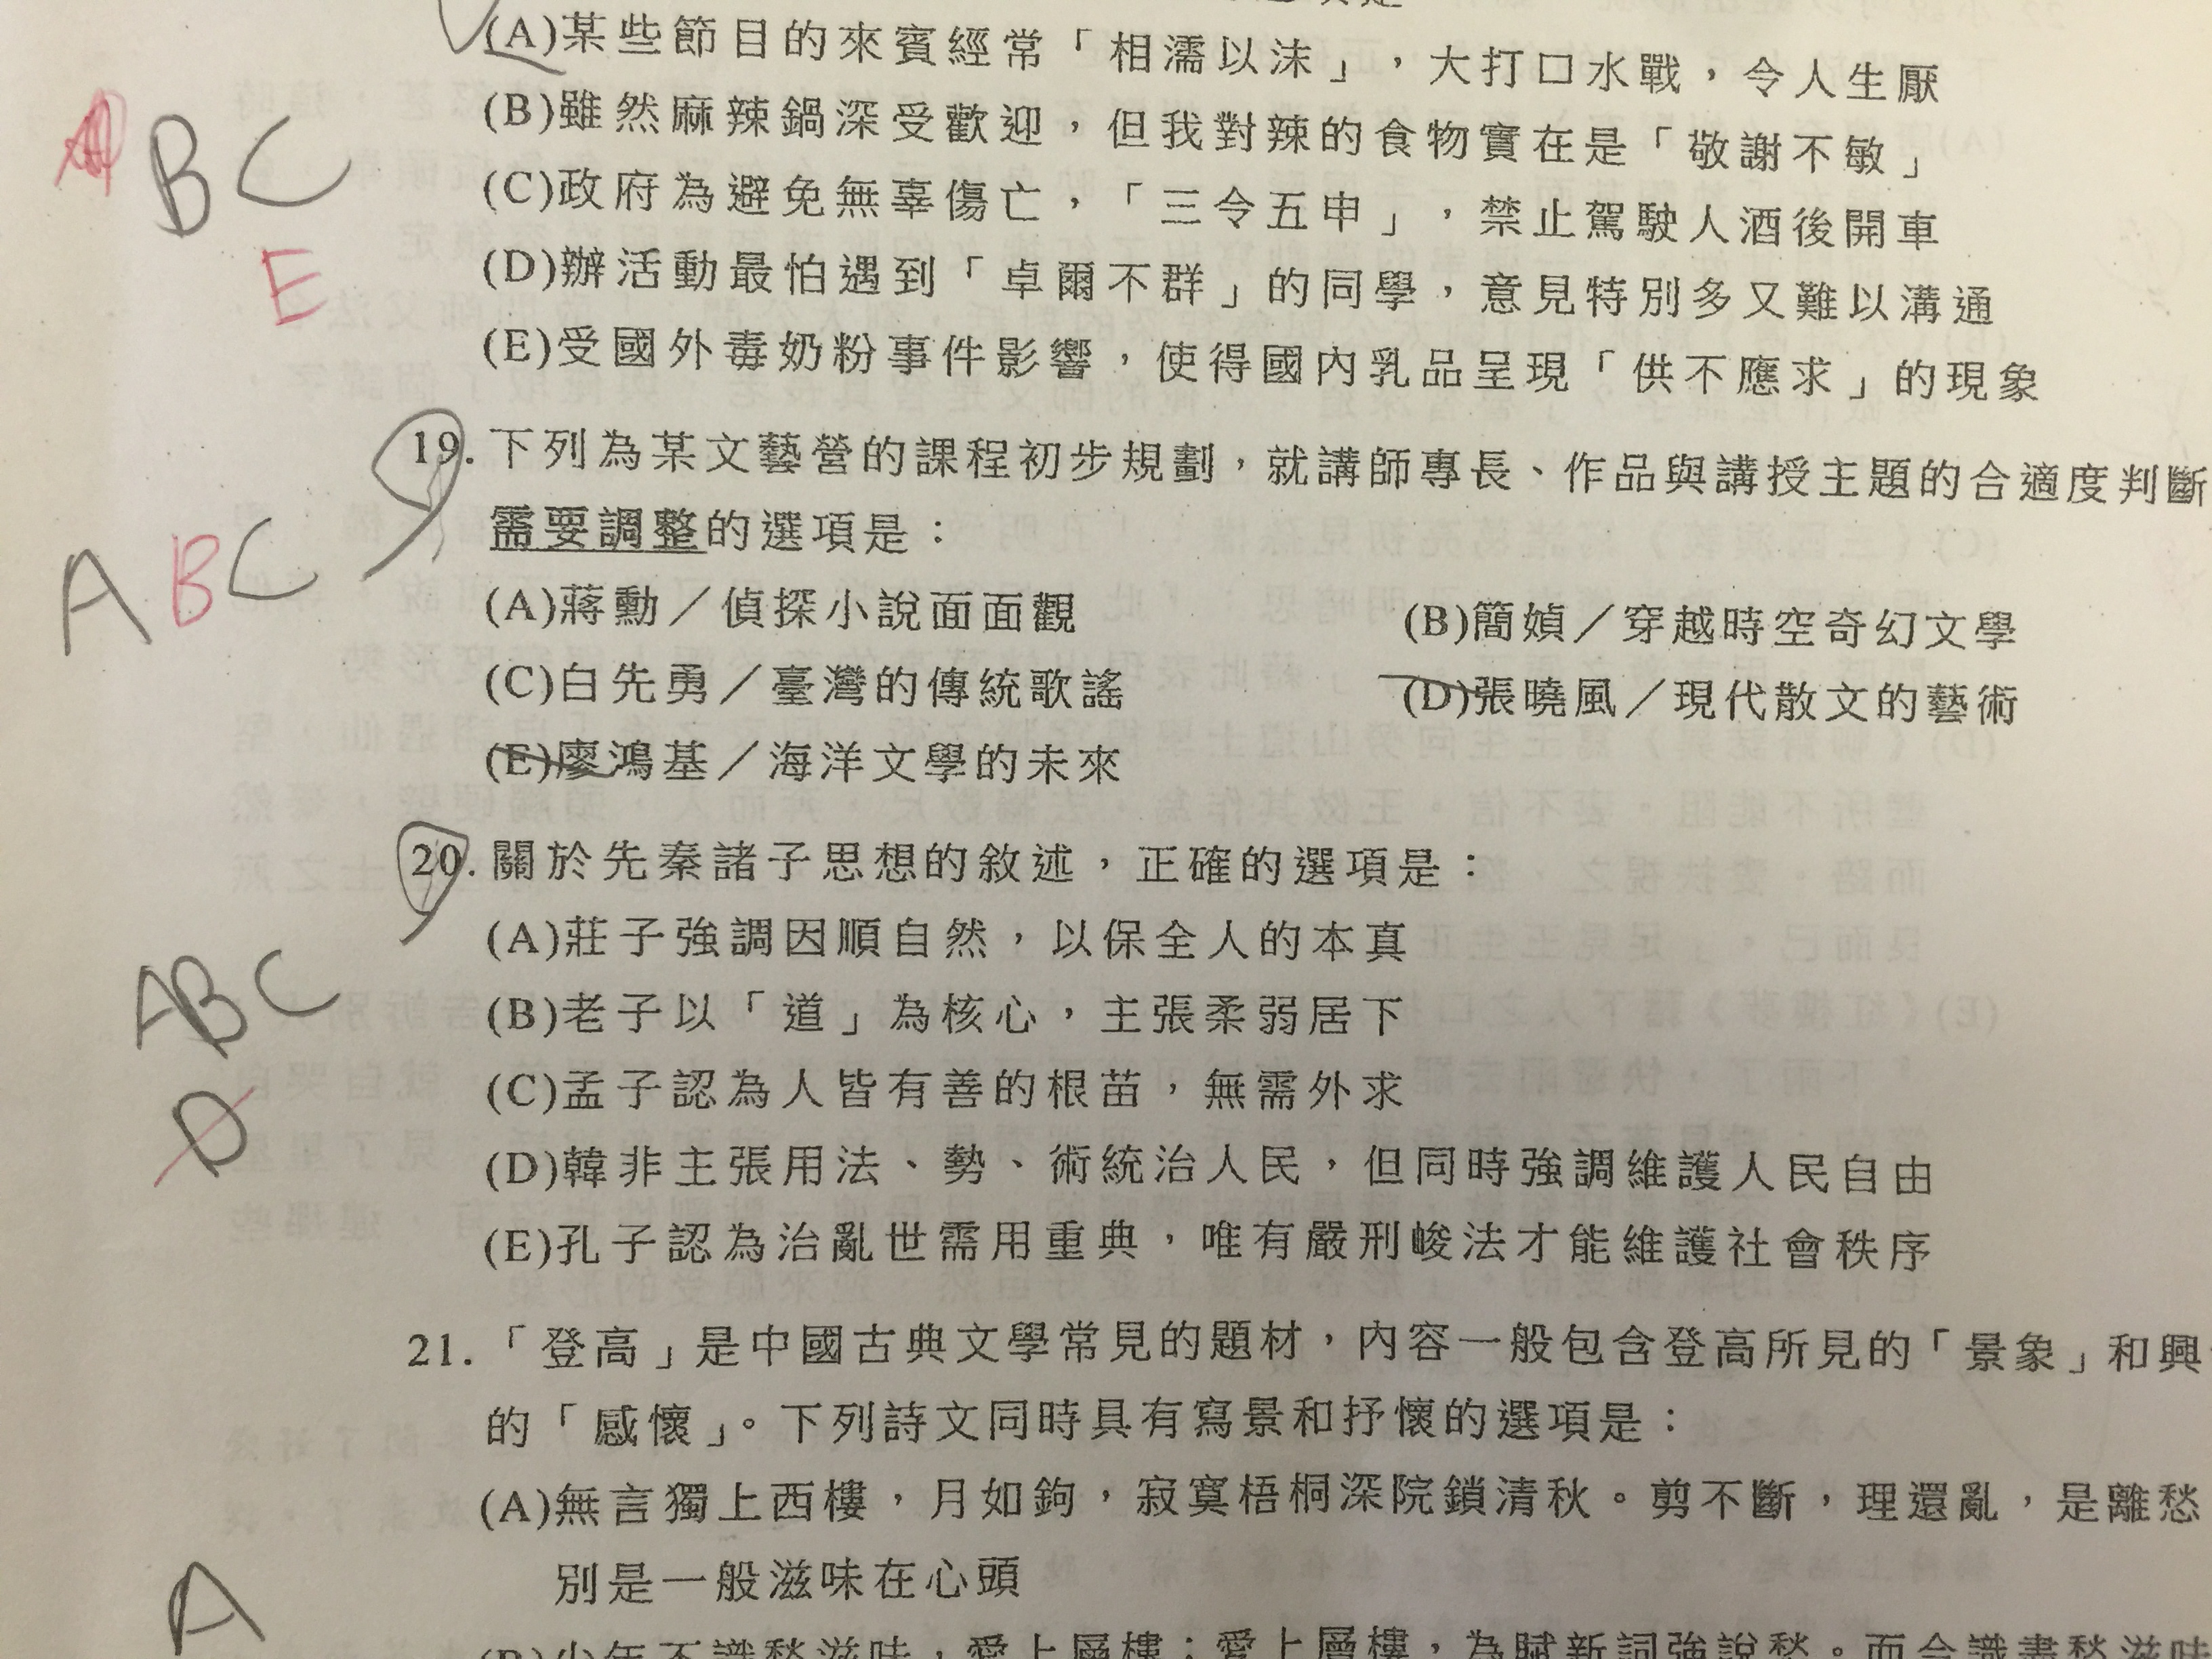 (A)某些節目的來賓經常「相濡以沫」，大打口水戰，令人生厭
(B)雖然麻辣鍋深受歡迎，但我對辣的食物實在是「敬謝不敏」
(C)政府為避免無辜傷亡，「三令五申」，禁止駕駛人酒後開車
(D)辦活動最怕遇到「卓爾不群」的同學，意見特別多又難以溝通
(E)受國外毒奶粉事件影響，使得國內乳品呈現「供不應求」的現象
BC
E
19. 下列為某文藝營的課程初步規劃，就講師專長、作品與講授主題的合適度判斷
需要調整的選項是：
(A)蔣勳／偵探小說面面觀
(B)簡媜／穿越時空奇幻文學
(C)白先勇／臺灣的傳統歌謠
(D)張曉風／現代散文的藝術
(E)廖鴻基／海洋文學的未來
ABC
20. 關於先秦諸子思想的敘述，正確的選項是：
(A)莊子強調因順自然，以保全人的本真
(B)老子以「道」為核心，主張柔弱居下
(C)孟子認為人皆有善的根苗，無需外求
(D)韓非主張用法、勢、術統治人民，但同時強調維護人民自由
(E)孔子認為治亂世需用重典，唯有嚴刑峻法才能維護社會秩序
ABC
D
21. 「登高」是中國古典文學常見的題材，內容一般包含登高所見的「景象」和興
的「感懷」。下列詩文同時具有寫景和抒懷的選項是：
(A)無言獨上西樓，月如鉤，寂寞梧桐深院鎖清秋。剪不斷，理還亂，是離愁
別是一般滋味在心頭
A
(B)少年不識愁滋味，愛上層樓；愛上層樓，為賦新詞強說愁。而今識盡愁滋味